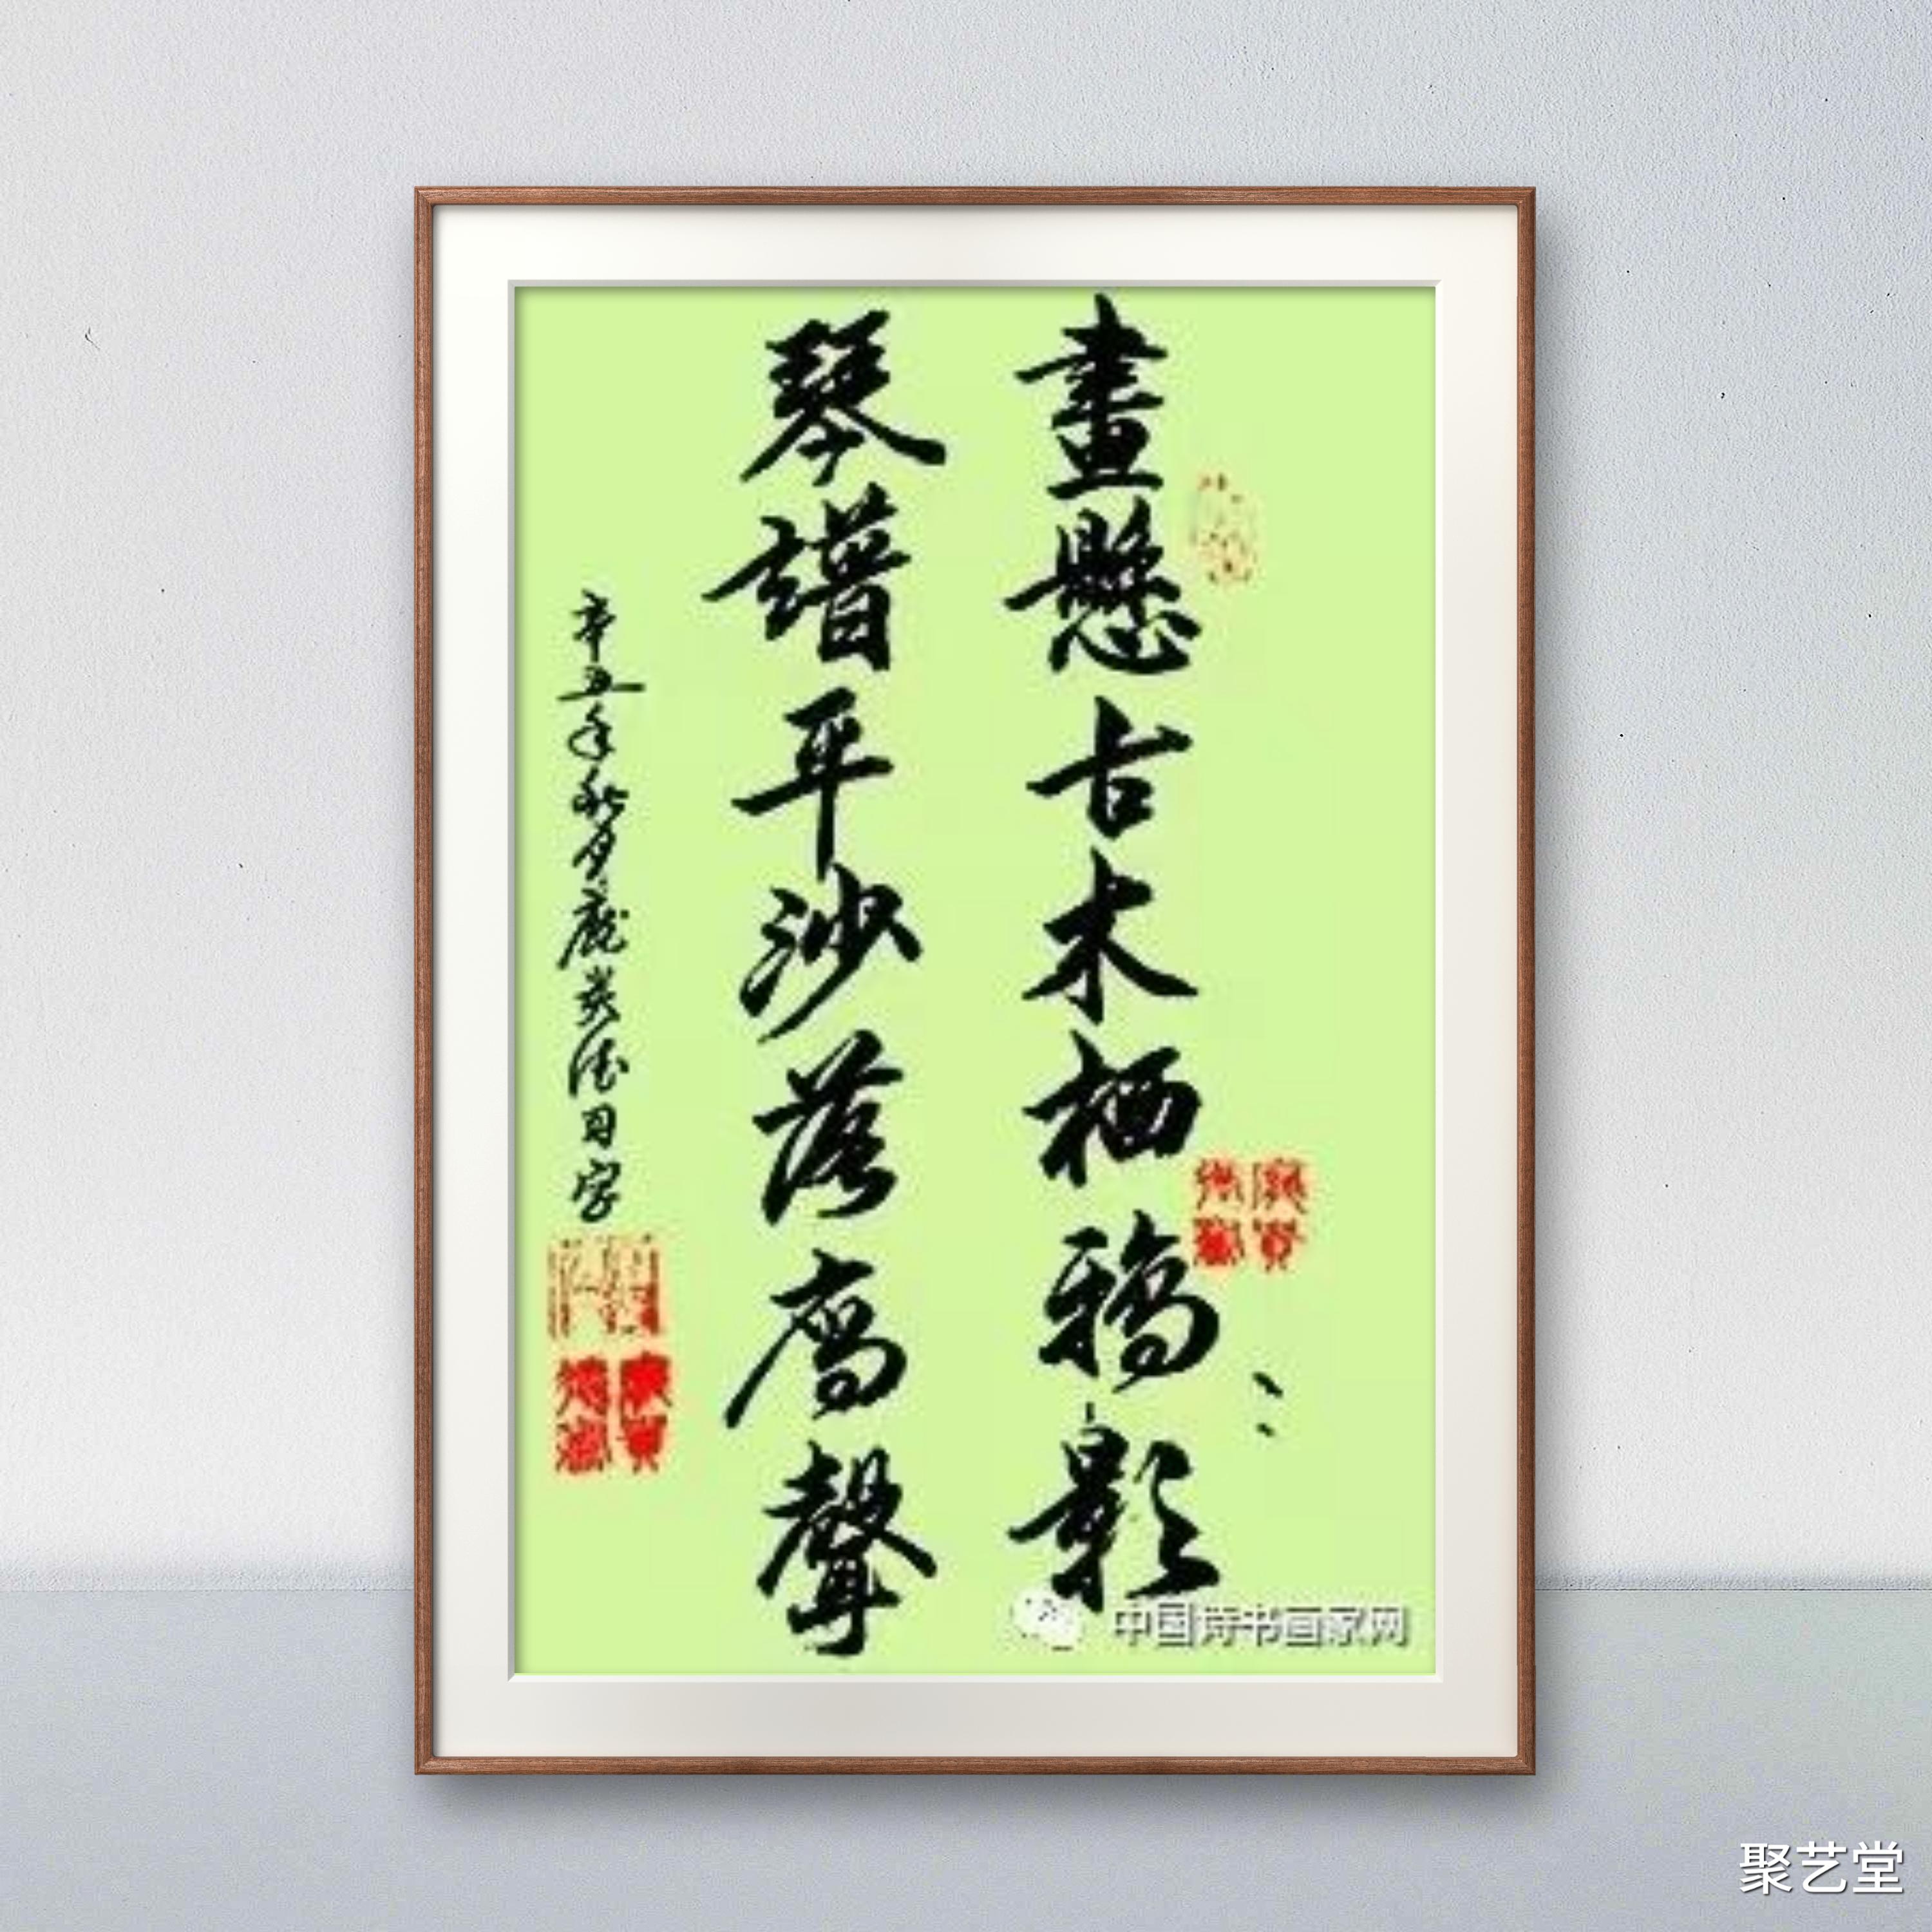 畫懸古木栖鴉影
琴譜平沙落雁聲
辛丑年秋月龐炎德習字
中国诗书画家网
聚艺堂